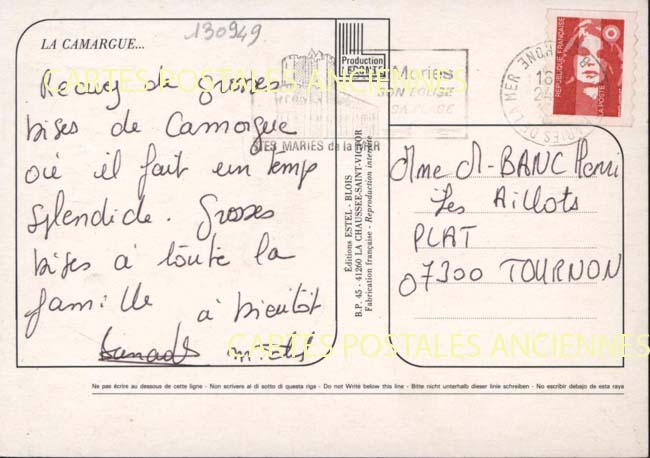 130949
LA CAMARGUE...
Recevez de grosses
bises de Camargue
où il fait un temps
splendide. Grosses
bises à toute la
famille à bientôt
Production
ESTEL
Editions ESTEL - BLOIS
B.P. 45 - 41260 LA CHAUSSEE-SAINT-VICTOR
Fabrication française - Reproduction interdite
Maries
SON EGLISE
SA PLAGE
STES MARIES de la MER
MARIES DE LA MER
RHONE
REPUBLIQUE FRANÇAISE
LA POSTE
Mme M-BANC Henri
Les Aillots
PLAT
07300 TOURNON
Ne pas écrire au dessous de cette ligne - Non scrivere al di sotto di questa riga - Do not Write below this line - Bitte nicht unterhalb dieser linie schreiben - No escribir debajo de esta raya
CARTES POSTALES ANCIENNES
CARTES POSTALES ANCIENNES